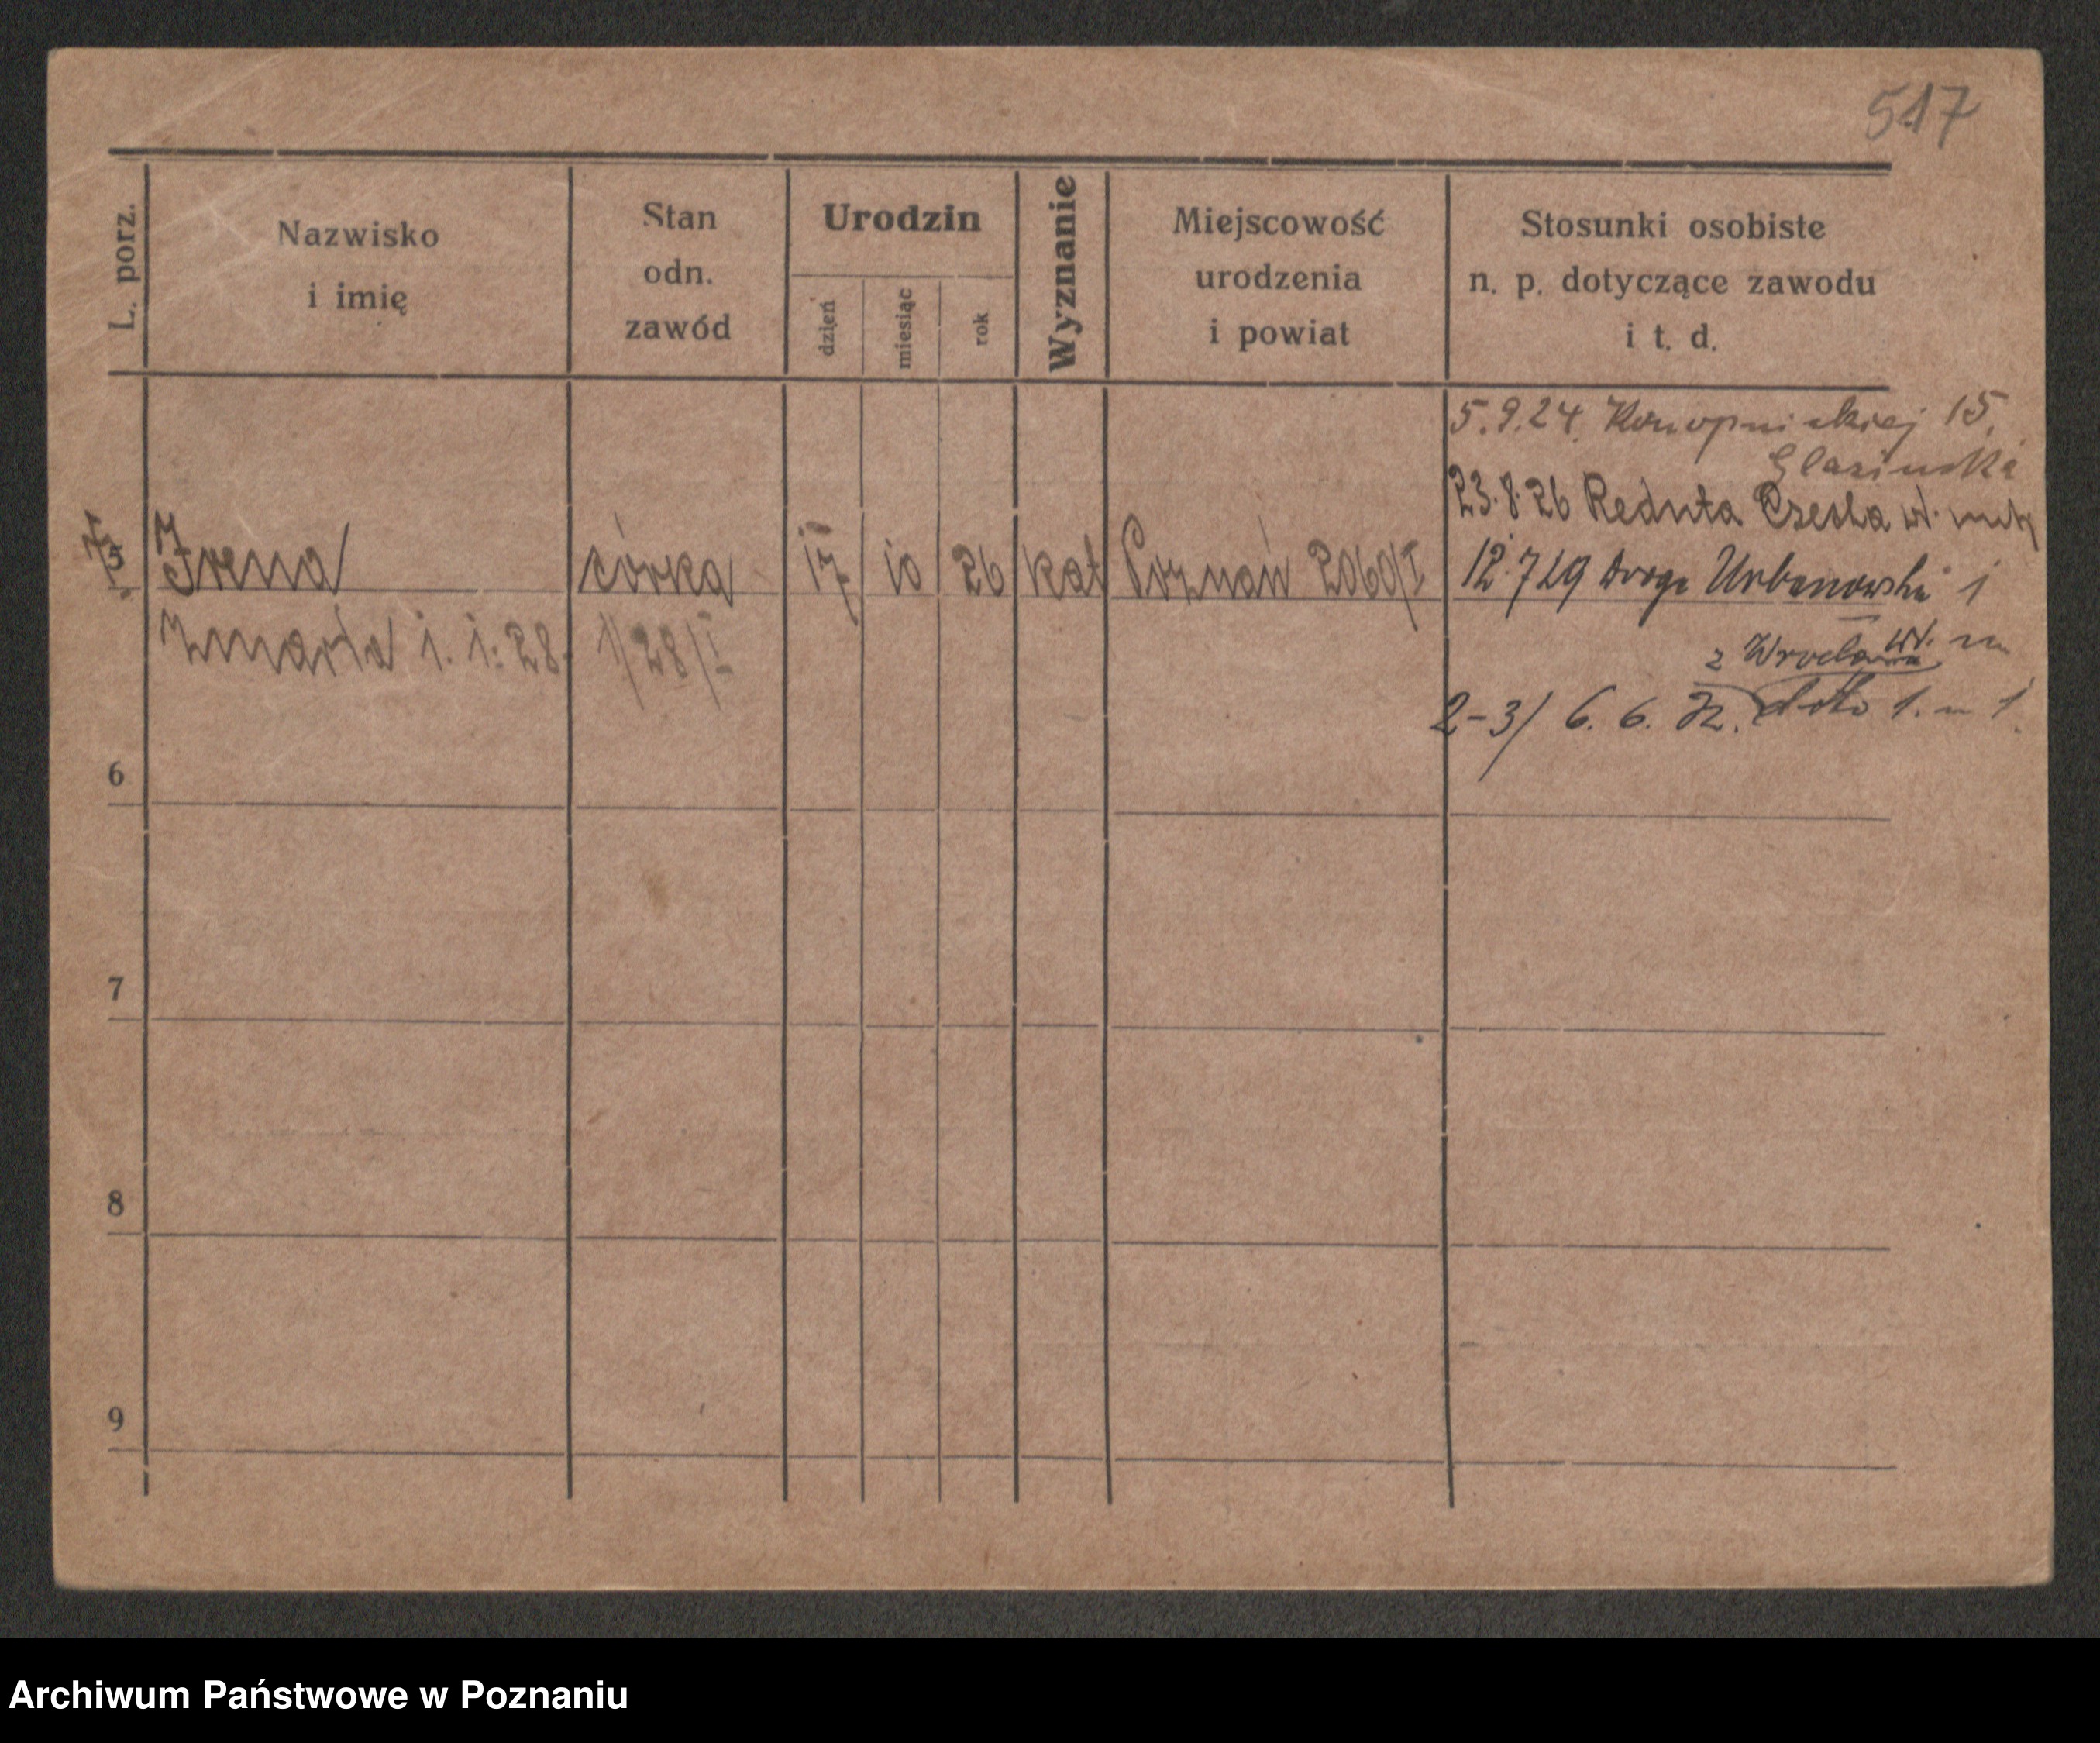 517
L. porz.
Nazwisko
i imię
Stan
odn.
zawód
Urodzin
dzień
miesiąc
rok
Wyznanie
Miejscowość
urodzenia
i powiat
Stosunki osobiste
n. p. dotyczące zawodu
i t. d.
5.9.24. Konopnickiej 15.
23.8.26 Reduta
5 Irena córka 17 10 26 kat Poznań 2060/I
12.7 29 Droga Urbanowska 1
Zmarła 1. 1. 28. 1/28/I
z Wrocławia
2-3/ 6. 6. 32. 1. m 1.
6
7
8
9
Archiwum Państwowe w Poznaniu